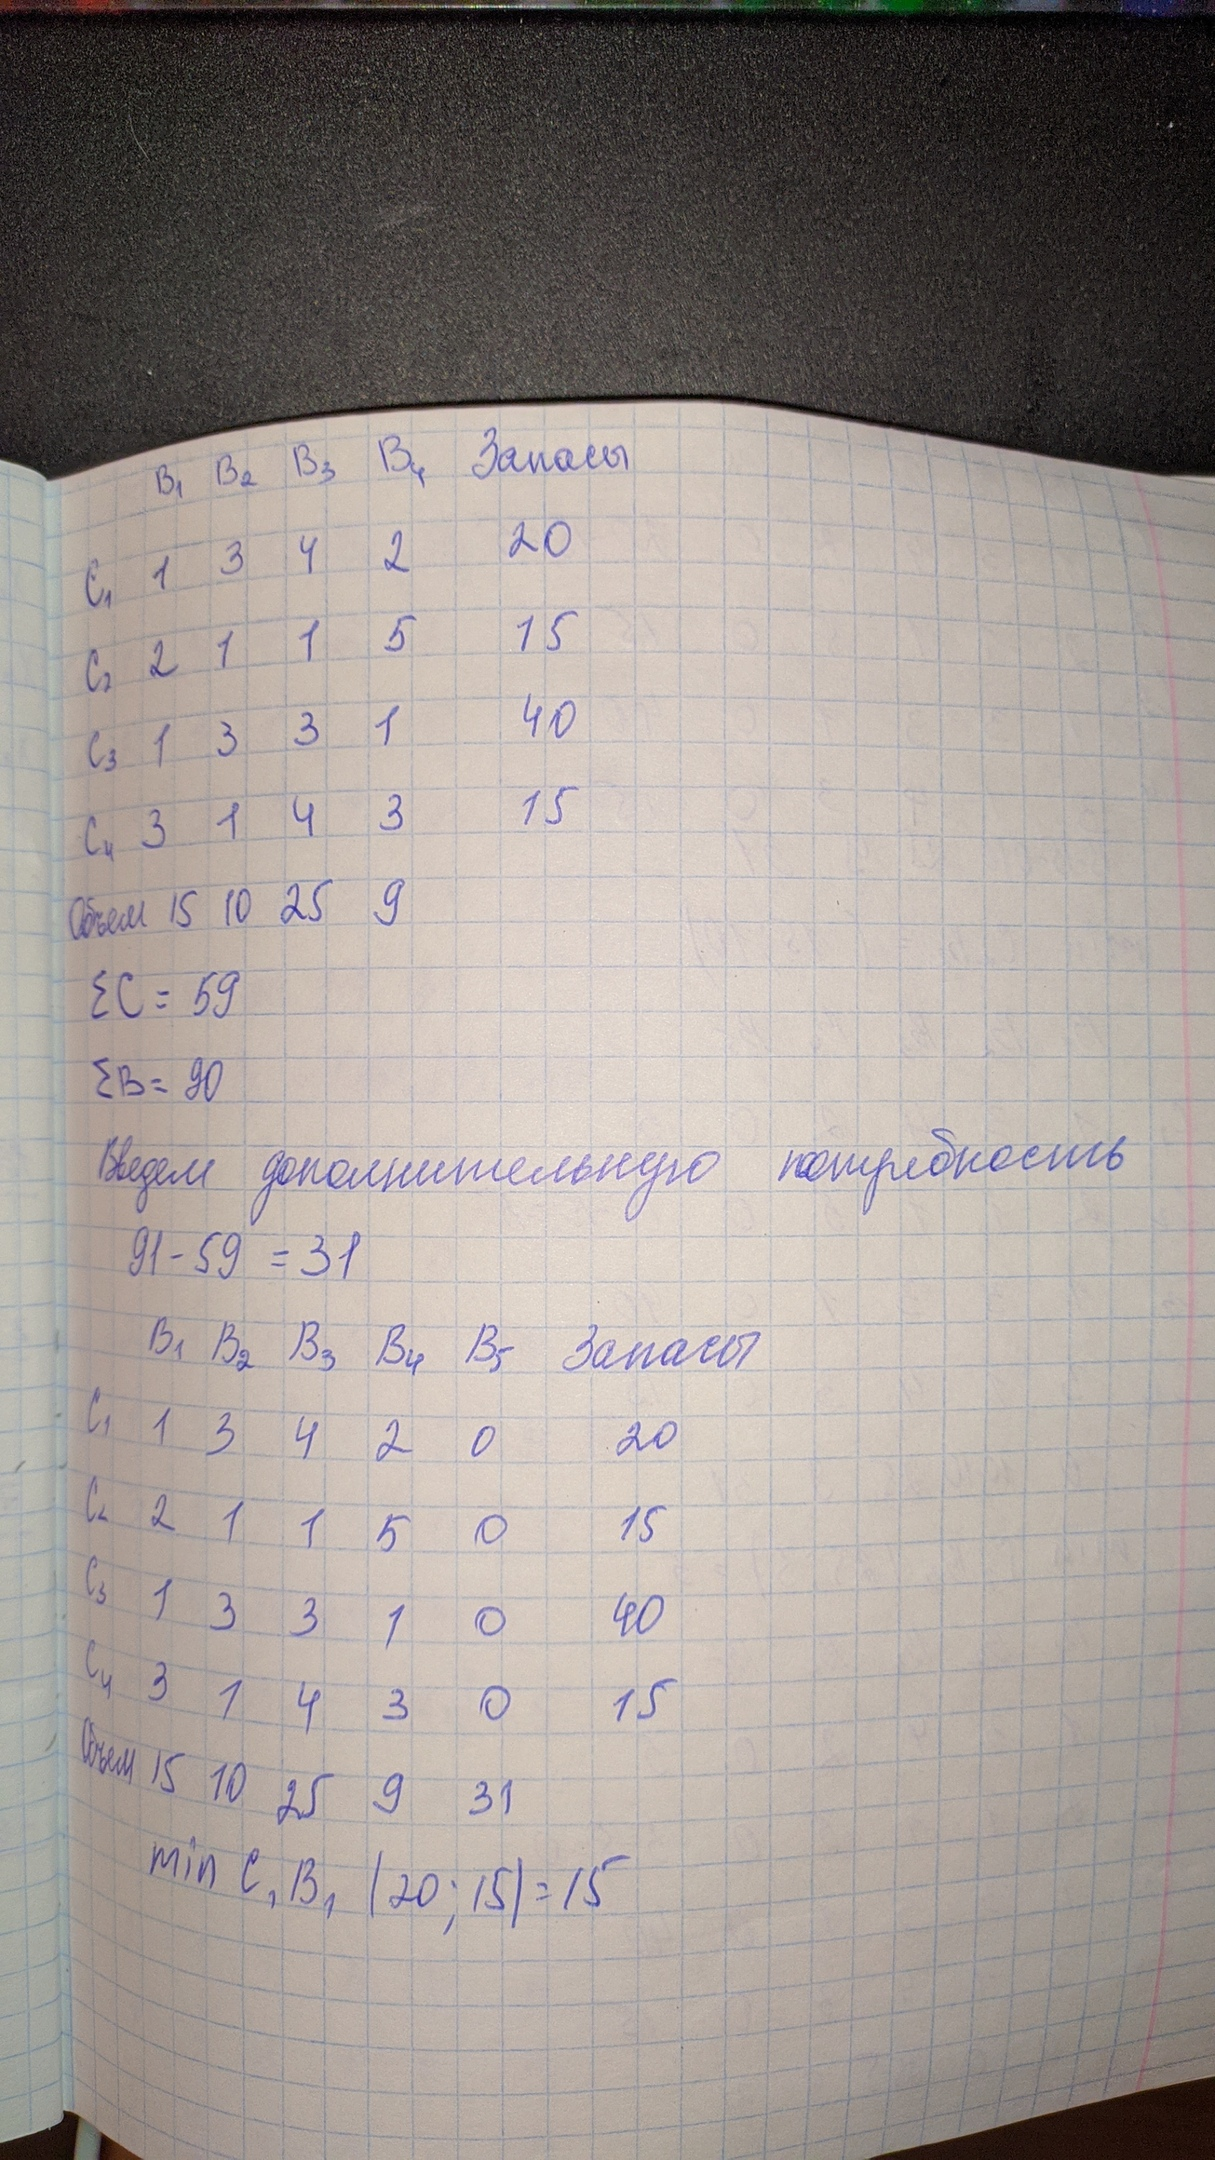 B₁ B₂ B₃ B₄ Запасы
C₁ 1 3 4 2 20
C₂ 2 1 1 5 15
C₃ 1 3 3 1 40
C₄ 3 1 4 3 15
Объем 15 10 25 9
ΣC = 59
ΣB = 90
Введем дополнительную потребность
91 - 59 = 31
B₁ B₂ B₃ B₄ B₅ Запасы
C₁ 1 3 4 2 0 20
C₂ 2 1 1 5 0 15
C₃ 1 3 3 1 0 40
C₄ 3 1 4 3 0 15
Объем 15 10 25 9 31
min C₁B₁ (20; 15) = 15